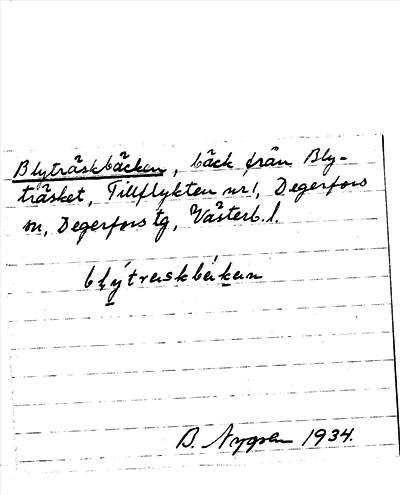 Blyträskbäcken, bäck från Bly-
träsket, Tillflykten nr 1, Degerfors
sn, Degerfors tg, Västerb. l.
blýtraskbäkan
B. Nygren 1934.